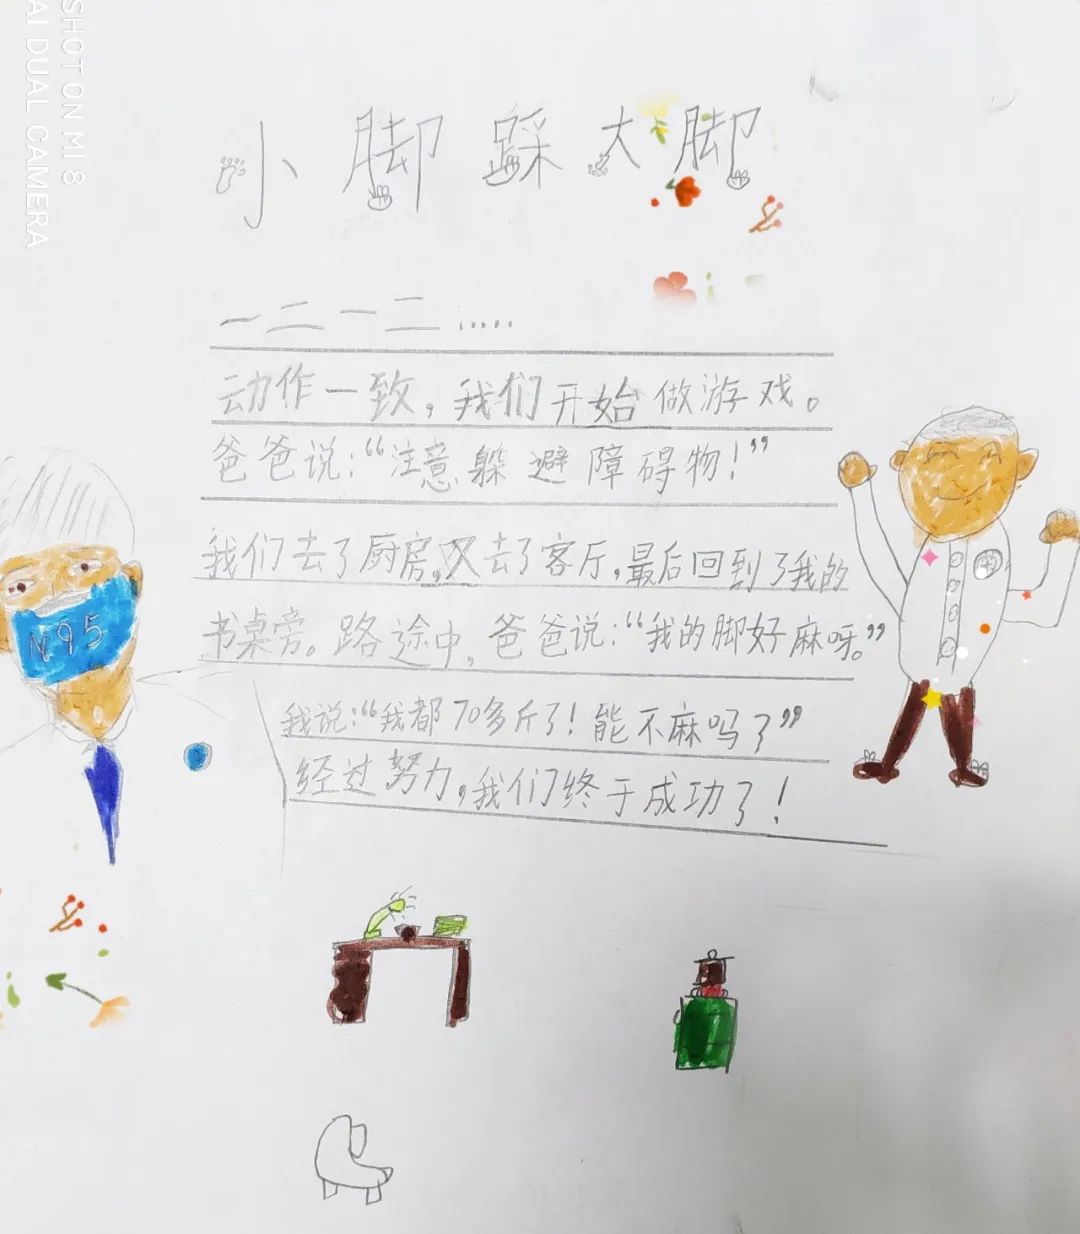 小脚踩大脚
一二一二.....
动作一致，我们开始做游戏。
爸爸说：“注意躲避障碍物！”
我们去了厨房，又去了客厅，最后回到了我的
书桌旁。路途中，爸爸说：“我的脚好麻呀。”
我说：“我都70多斤了！能不麻吗？”
经过努力，我们终于成功了！
N95
SHOT ON MI 8
AI DUAL CAMERA